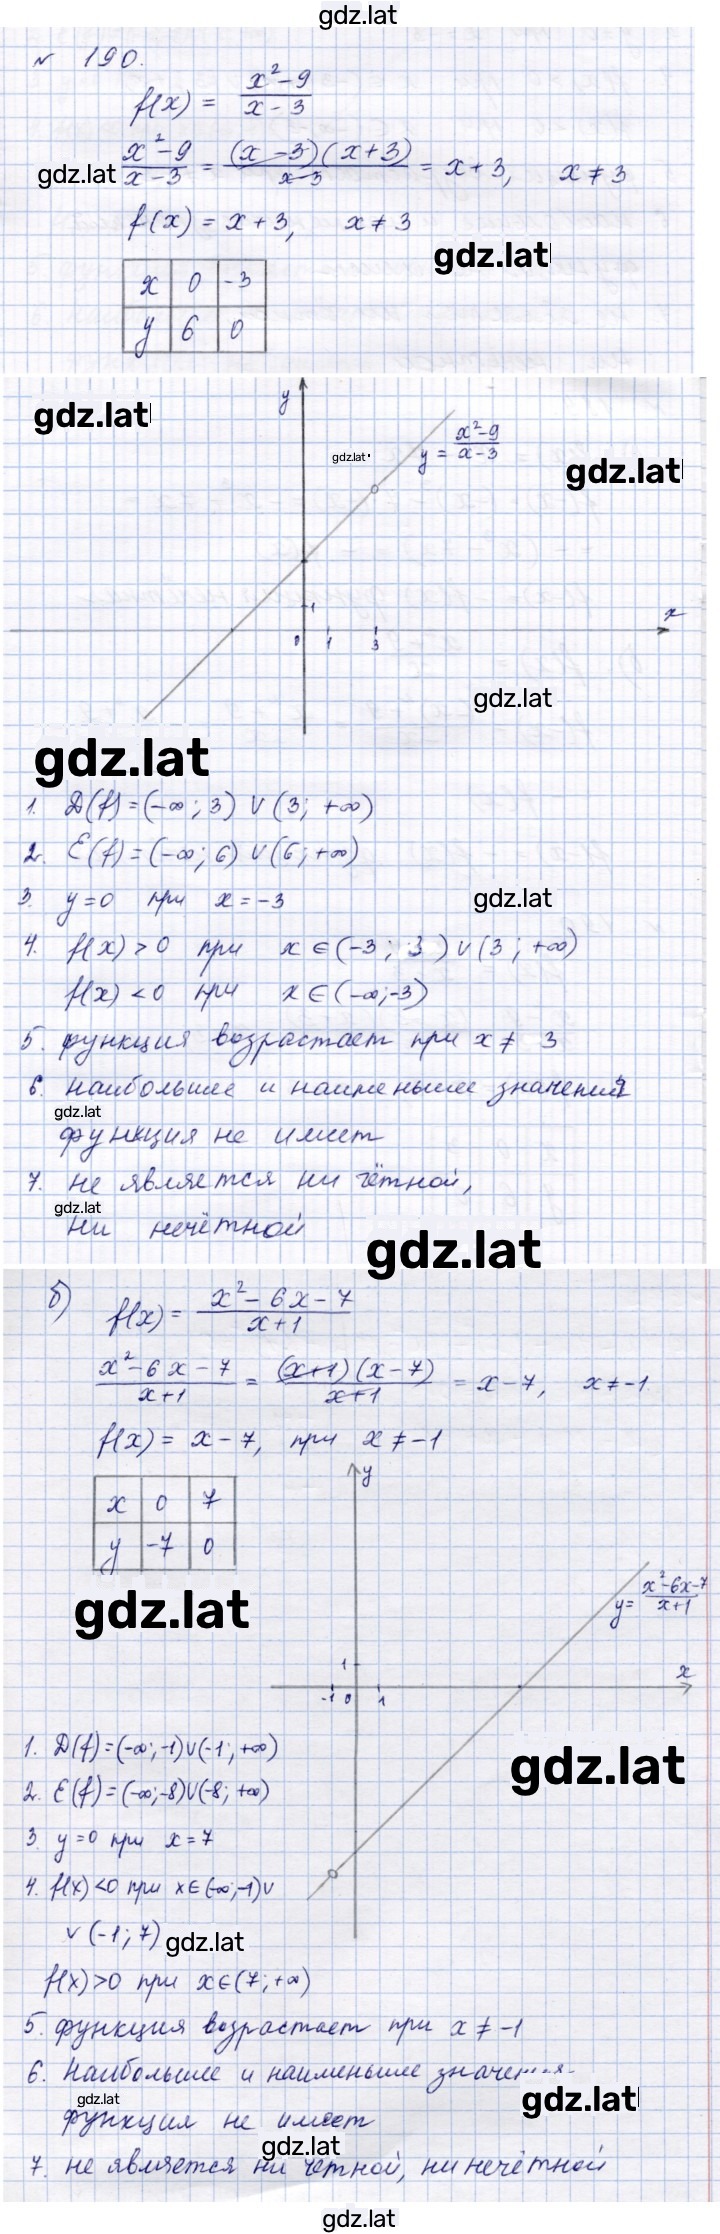 gdz.lat
№ 190.
f(x) = x²-9 / x-3
gdz.lat x²-9 / x-3 = (x-3)(x+3) / x-3 = x+3, x≠3
f(x) = x+3, x≠3
gdz.lat
x 0 -3
y 6 0
gdz.lat
y
gdz.lat
y = x²-9 / x-3
gdz.lat
1
x
0 1 3
gdz.lat
gdz.lat
1. D(f)=(-∞; 3) ∪ (3; +∞)
2. E(f)=(-∞; 6) ∪ (6; +∞)
3. y=0 при x=-3
gdz.lat
4. f(x)>0 при x∈(-3; 3) ∪ (3; +∞)
f(x)<0 при x∈(-∞;-3)
5. функция возрастает при x≠ 3
6. наибольшие и наименьшие значения
gdz.lat
функция не имеет
7. не является ни чётной,
gdz.lat
ни нечётной
gdz.lat
б) f(x)= x²-6x-7 / x+1
x²-6x-7 / x+1 = (x+1)(x-7) / x+1 = x-7, x≠-1.
f(x)= x-7, при x≠-1
x 0 7
y -7 0
y
gdz.lat
y= x²-6x-7 / x+1
1
x
-1 0 1
gdz.lat
1. D(f)=(-∞;-1)∪(-1;+∞)
2. E(f)=(-∞;-8)∪(-8;+∞)
3. y=0 при x=7
4. f(x)<0 при x∈(-∞;-1)∪
∪(-1;7)
gdz.lat
f(x)>0 при x∈(7;+∞)
5. функция возрастает при x≠-1
6. Наибольшие и наименьшие значения
gdz.lat
gdz.lat
функция не имеет
gdz.lat
7. не является ни четной, ни нечётной
gdz.lat